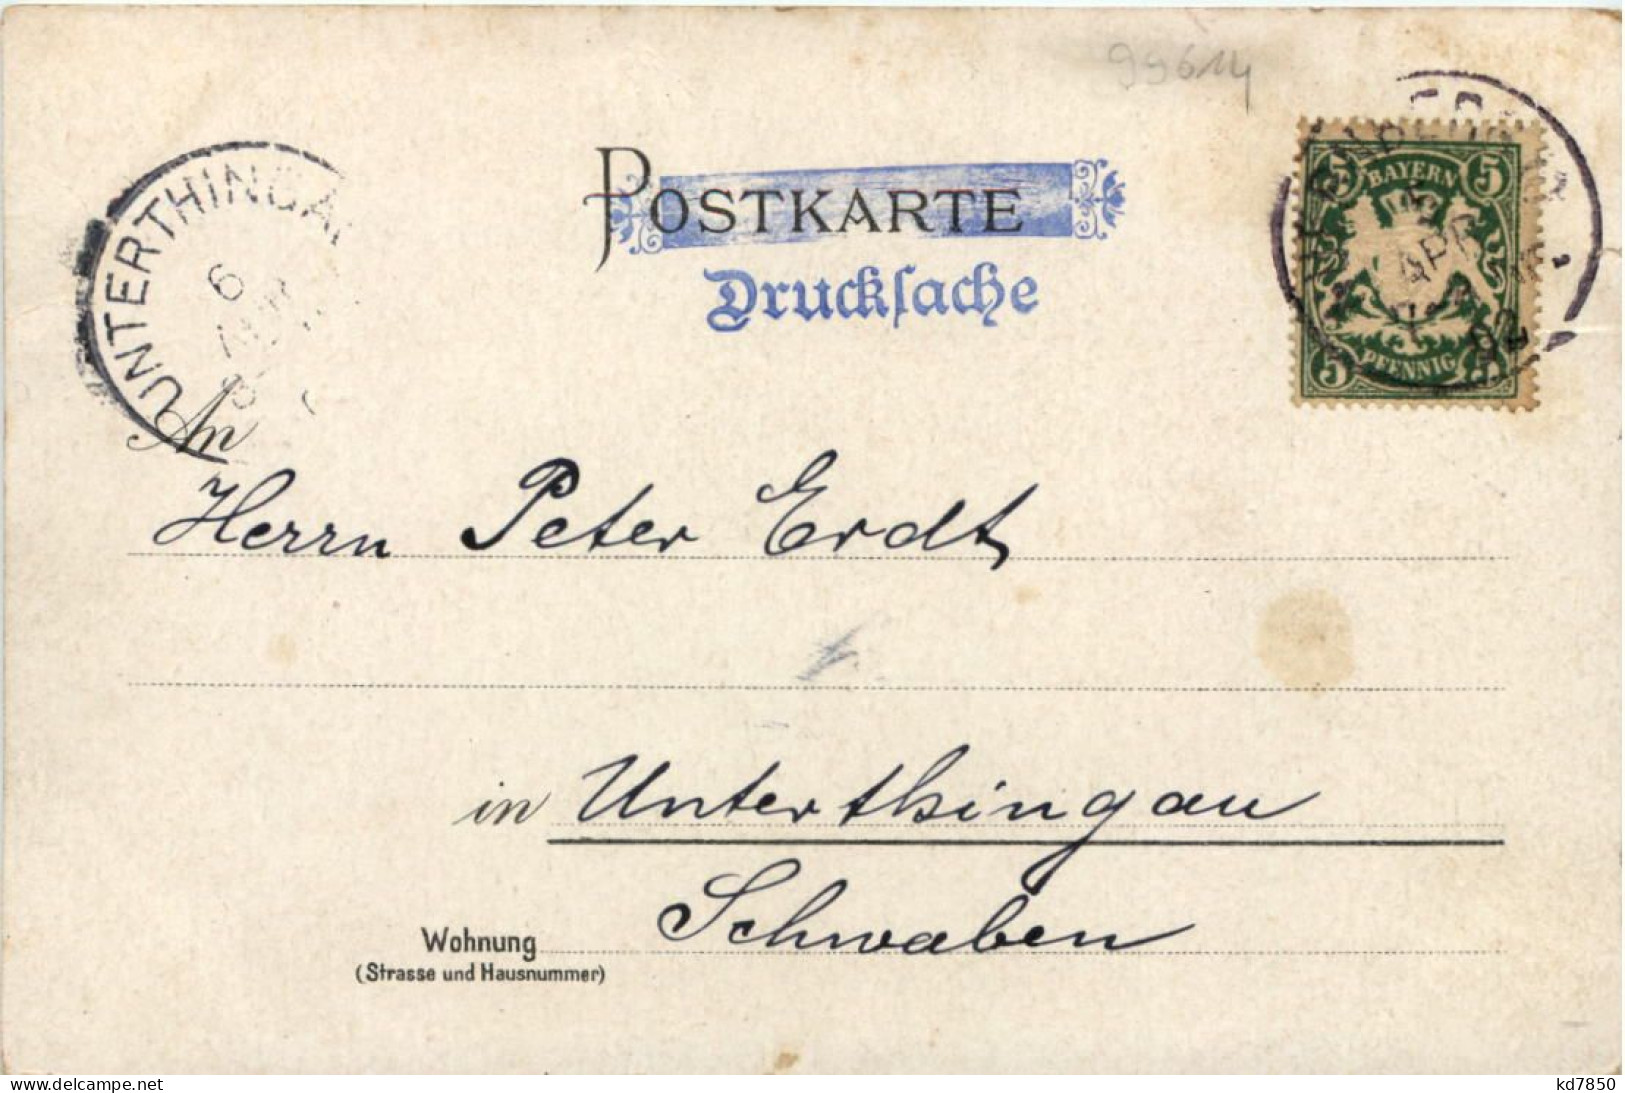 99614
POSTKARTE
Drucksache
BAYERN
5 5
APR
02
PFENNIG
5 5
UNTERTHINGAU
6
APR
An
Herrn Peter Erdt
in Unterthingau
Schwaben
Wohnung
(Strasse und Hausnummer)
www.delcampe.net
kd7850